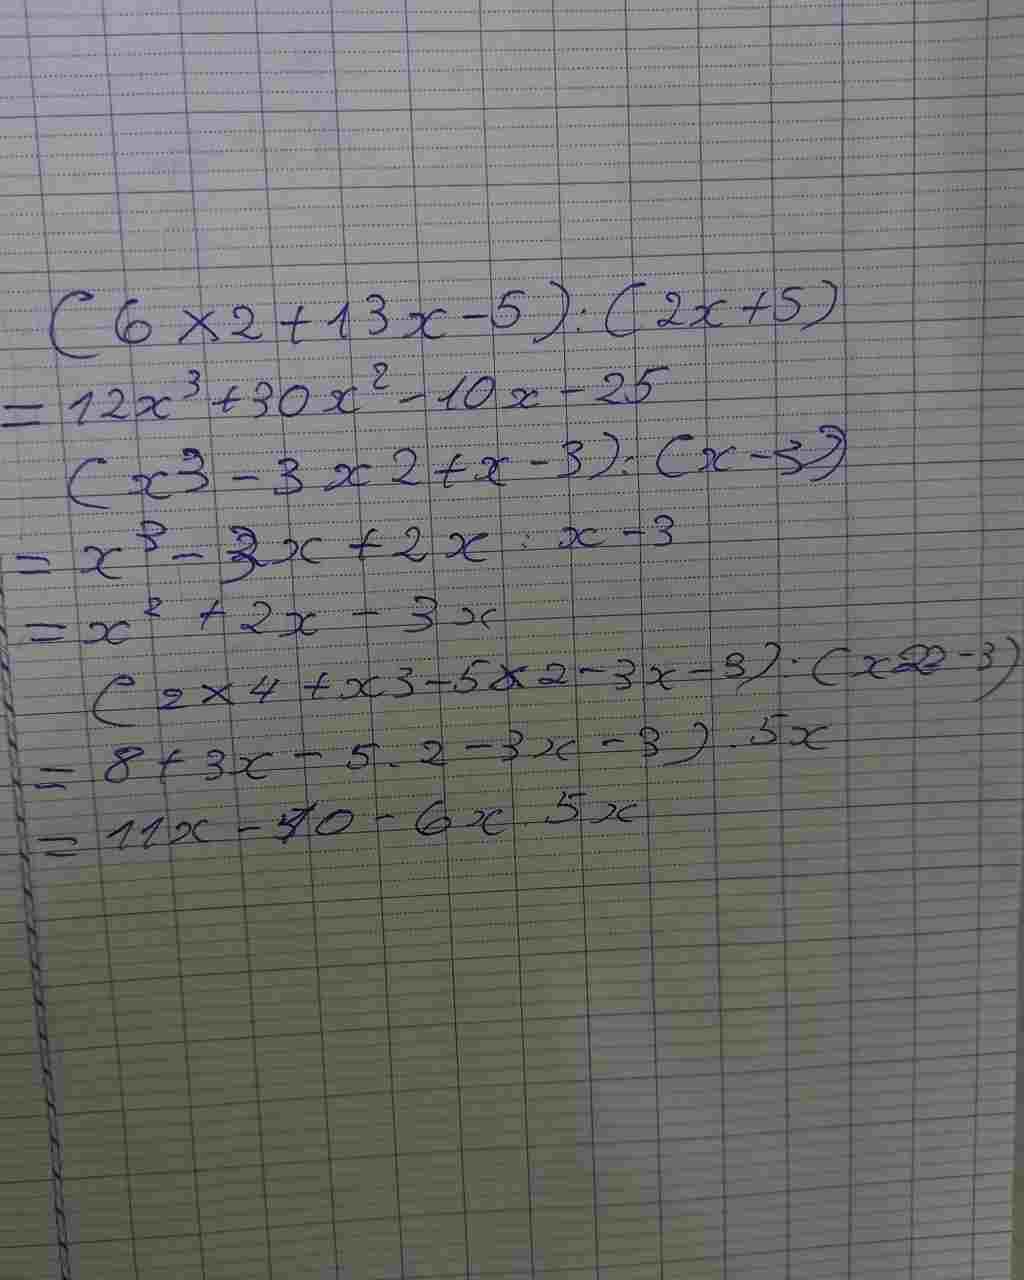 (6×2+13x-5):(2x+5)
= 12x³+30x²-10x-25
(x3-3x2+x-3):(x-3)
= x³-3x+2x:x-3
= x²+2x-3x
(2×4+x3-5×2-3x-3):(x2-3)
= 8+3x-5.2-3x-3).5x
= 11x-10-6x.5x